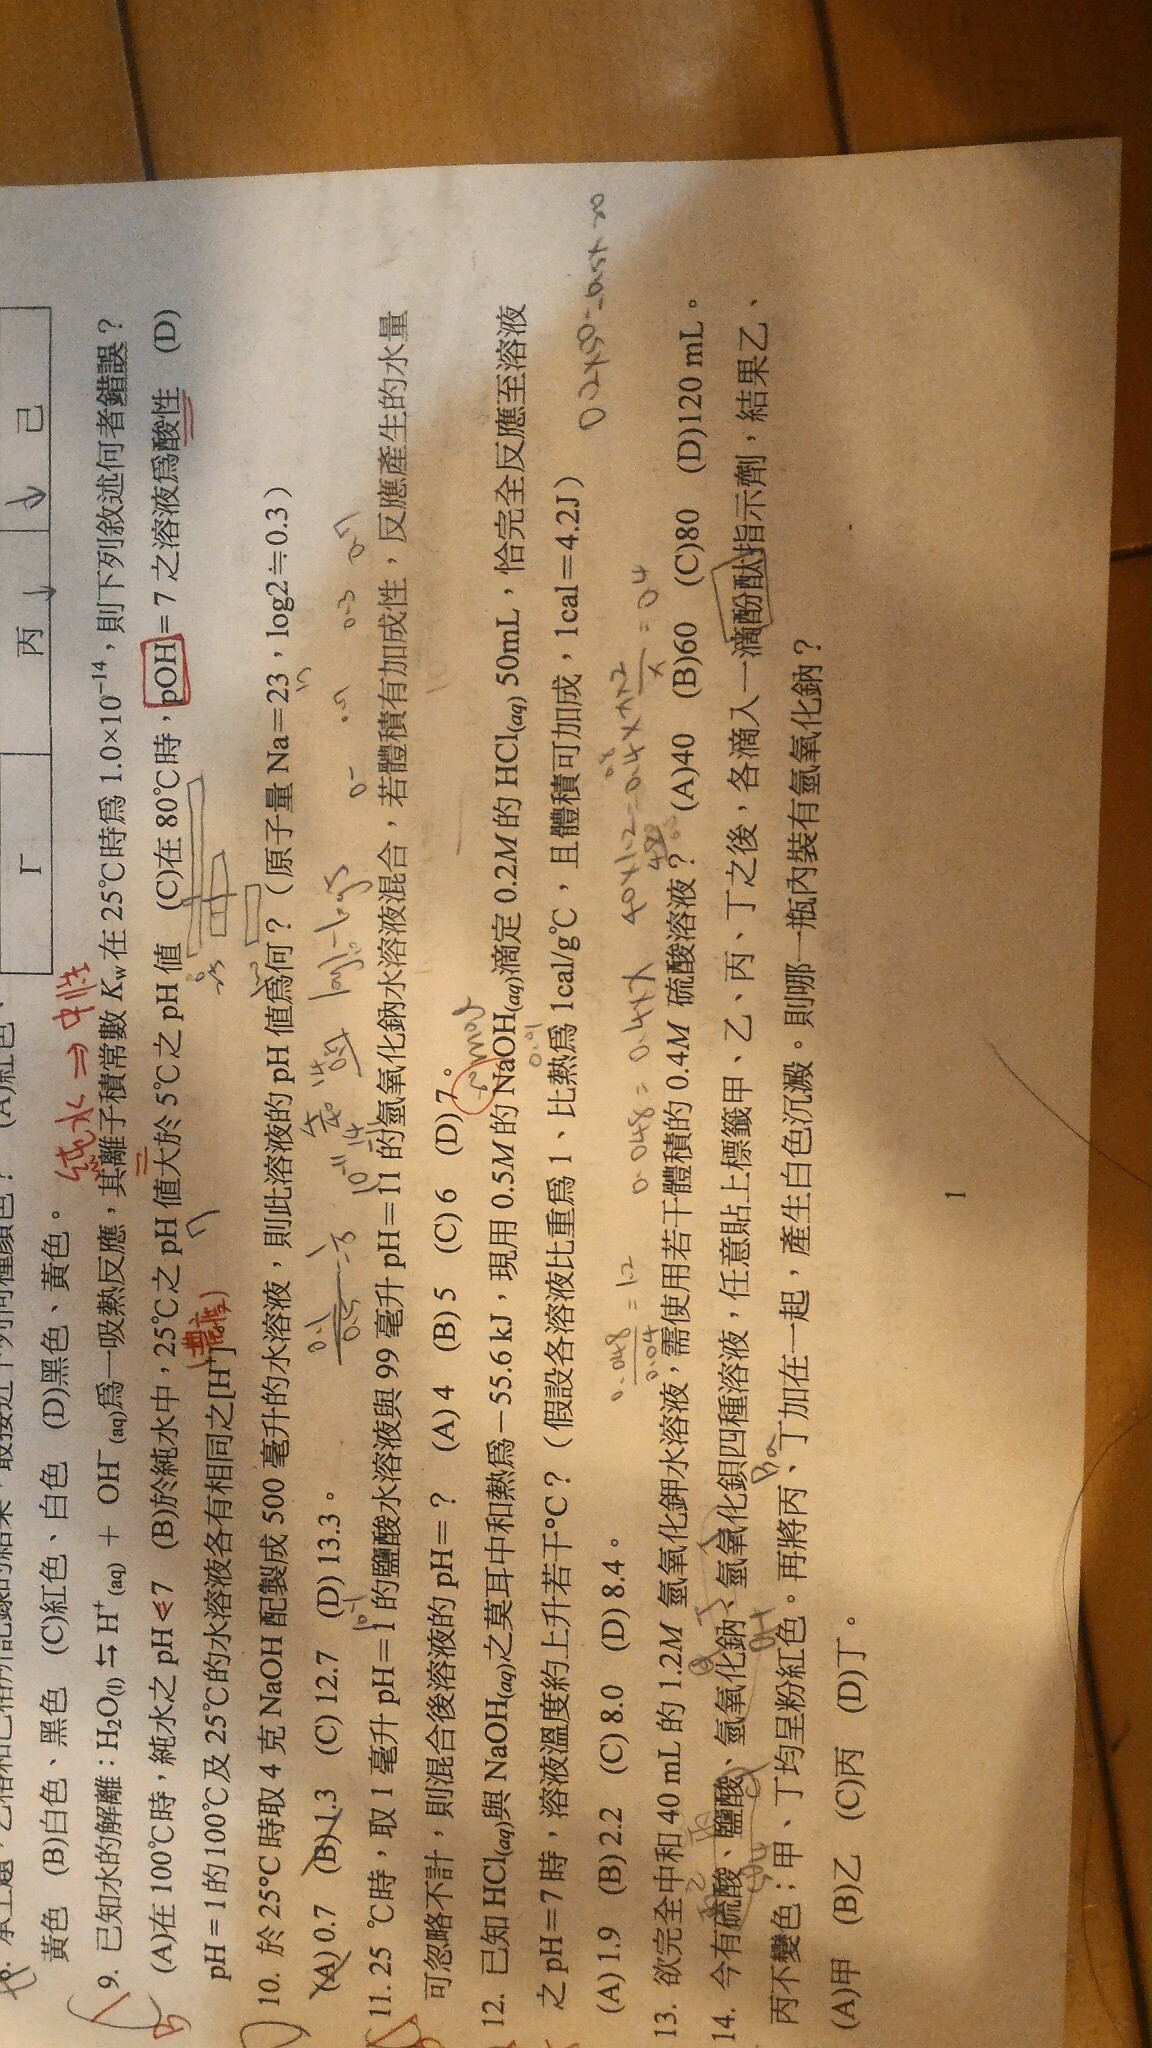 丙
己
黃色 (B)白色、黑色 (C)紅色、白色 (D)黑色、黃色。
純水 ⇒ 中性
9. 已知水的解離：H₂O(l) ⇆ H⁺(aq) + OH⁻(aq)為一吸熱反應，其離子積常數 Kw 在 25℃時為 1.0×10⁻¹⁴，則下列敘述何者錯誤？
(A)在 100℃時，純水之 pH < 7 (B)於純水中，25℃之 pH 值大於 5℃之 pH 值 (C)在 80℃時，pOH = 7 之溶液為酸性 (D)
pH = 1 的 100℃及 25℃的水溶液各有相同之[H⁺]
(濃度)
10. 於 25℃時取 4 克 NaOH 配製成 500 毫升的水溶液，則此溶液的 pH 值為何？（原子量 Na＝23，log2≒0.3）
(A) 0.7 (B) 1.3 (C) 12.7 (D) 13.3。
11. 25 ℃時，取 1 毫升 pH＝1 的鹽酸水溶液與 99 毫升 pH＝11 的氫氧化鈉水溶液混合，若體積有加成性，反應產生的水量
可忽略不計，則混合後溶液的 pH＝？ (A) 4 (B) 5 (C) 6 (D) 7。
12. 已知 HCl(aq)與 NaOH(aq)之莫耳中和熱為－55.6 kJ，現用 0.5M 的 NaOH(aq)滴定 0.2M 的 HCl(aq) 50mL，恰完全反應至溶液
之 pH＝7 時，溶液溫度約上升若干℃？（假設各溶液比重為 1、比熱為 1cal/g℃，且體積可加成，1cal＝4.2J）
(A) 1.9 (B) 2.2 (C) 8.0 (D) 8.4。
0.048 = 0.4×X
13. 欲完全中和 40 mL 的 1.2M 氫氧化鉀水溶液，需使用若干體積的 0.4M 硫酸溶液？ (A)40 (B)60 (C)80 (D)120 mL。
14. 今有硫酸、鹽酸、氫氧化鈉、氫氧化鋇四種溶液，任意貼上標籤甲、乙、丙、丁之後，各滴入一滴酚酞指示劑，結果乙、
丙不變色；甲、丁均呈粉紅色。再將丙、丁加在一起，產生白色沉澱。則哪一瓶內裝有氫氧化鈉？
Ba
(A)甲 (B)乙 (C)丙 (D)丁。
1